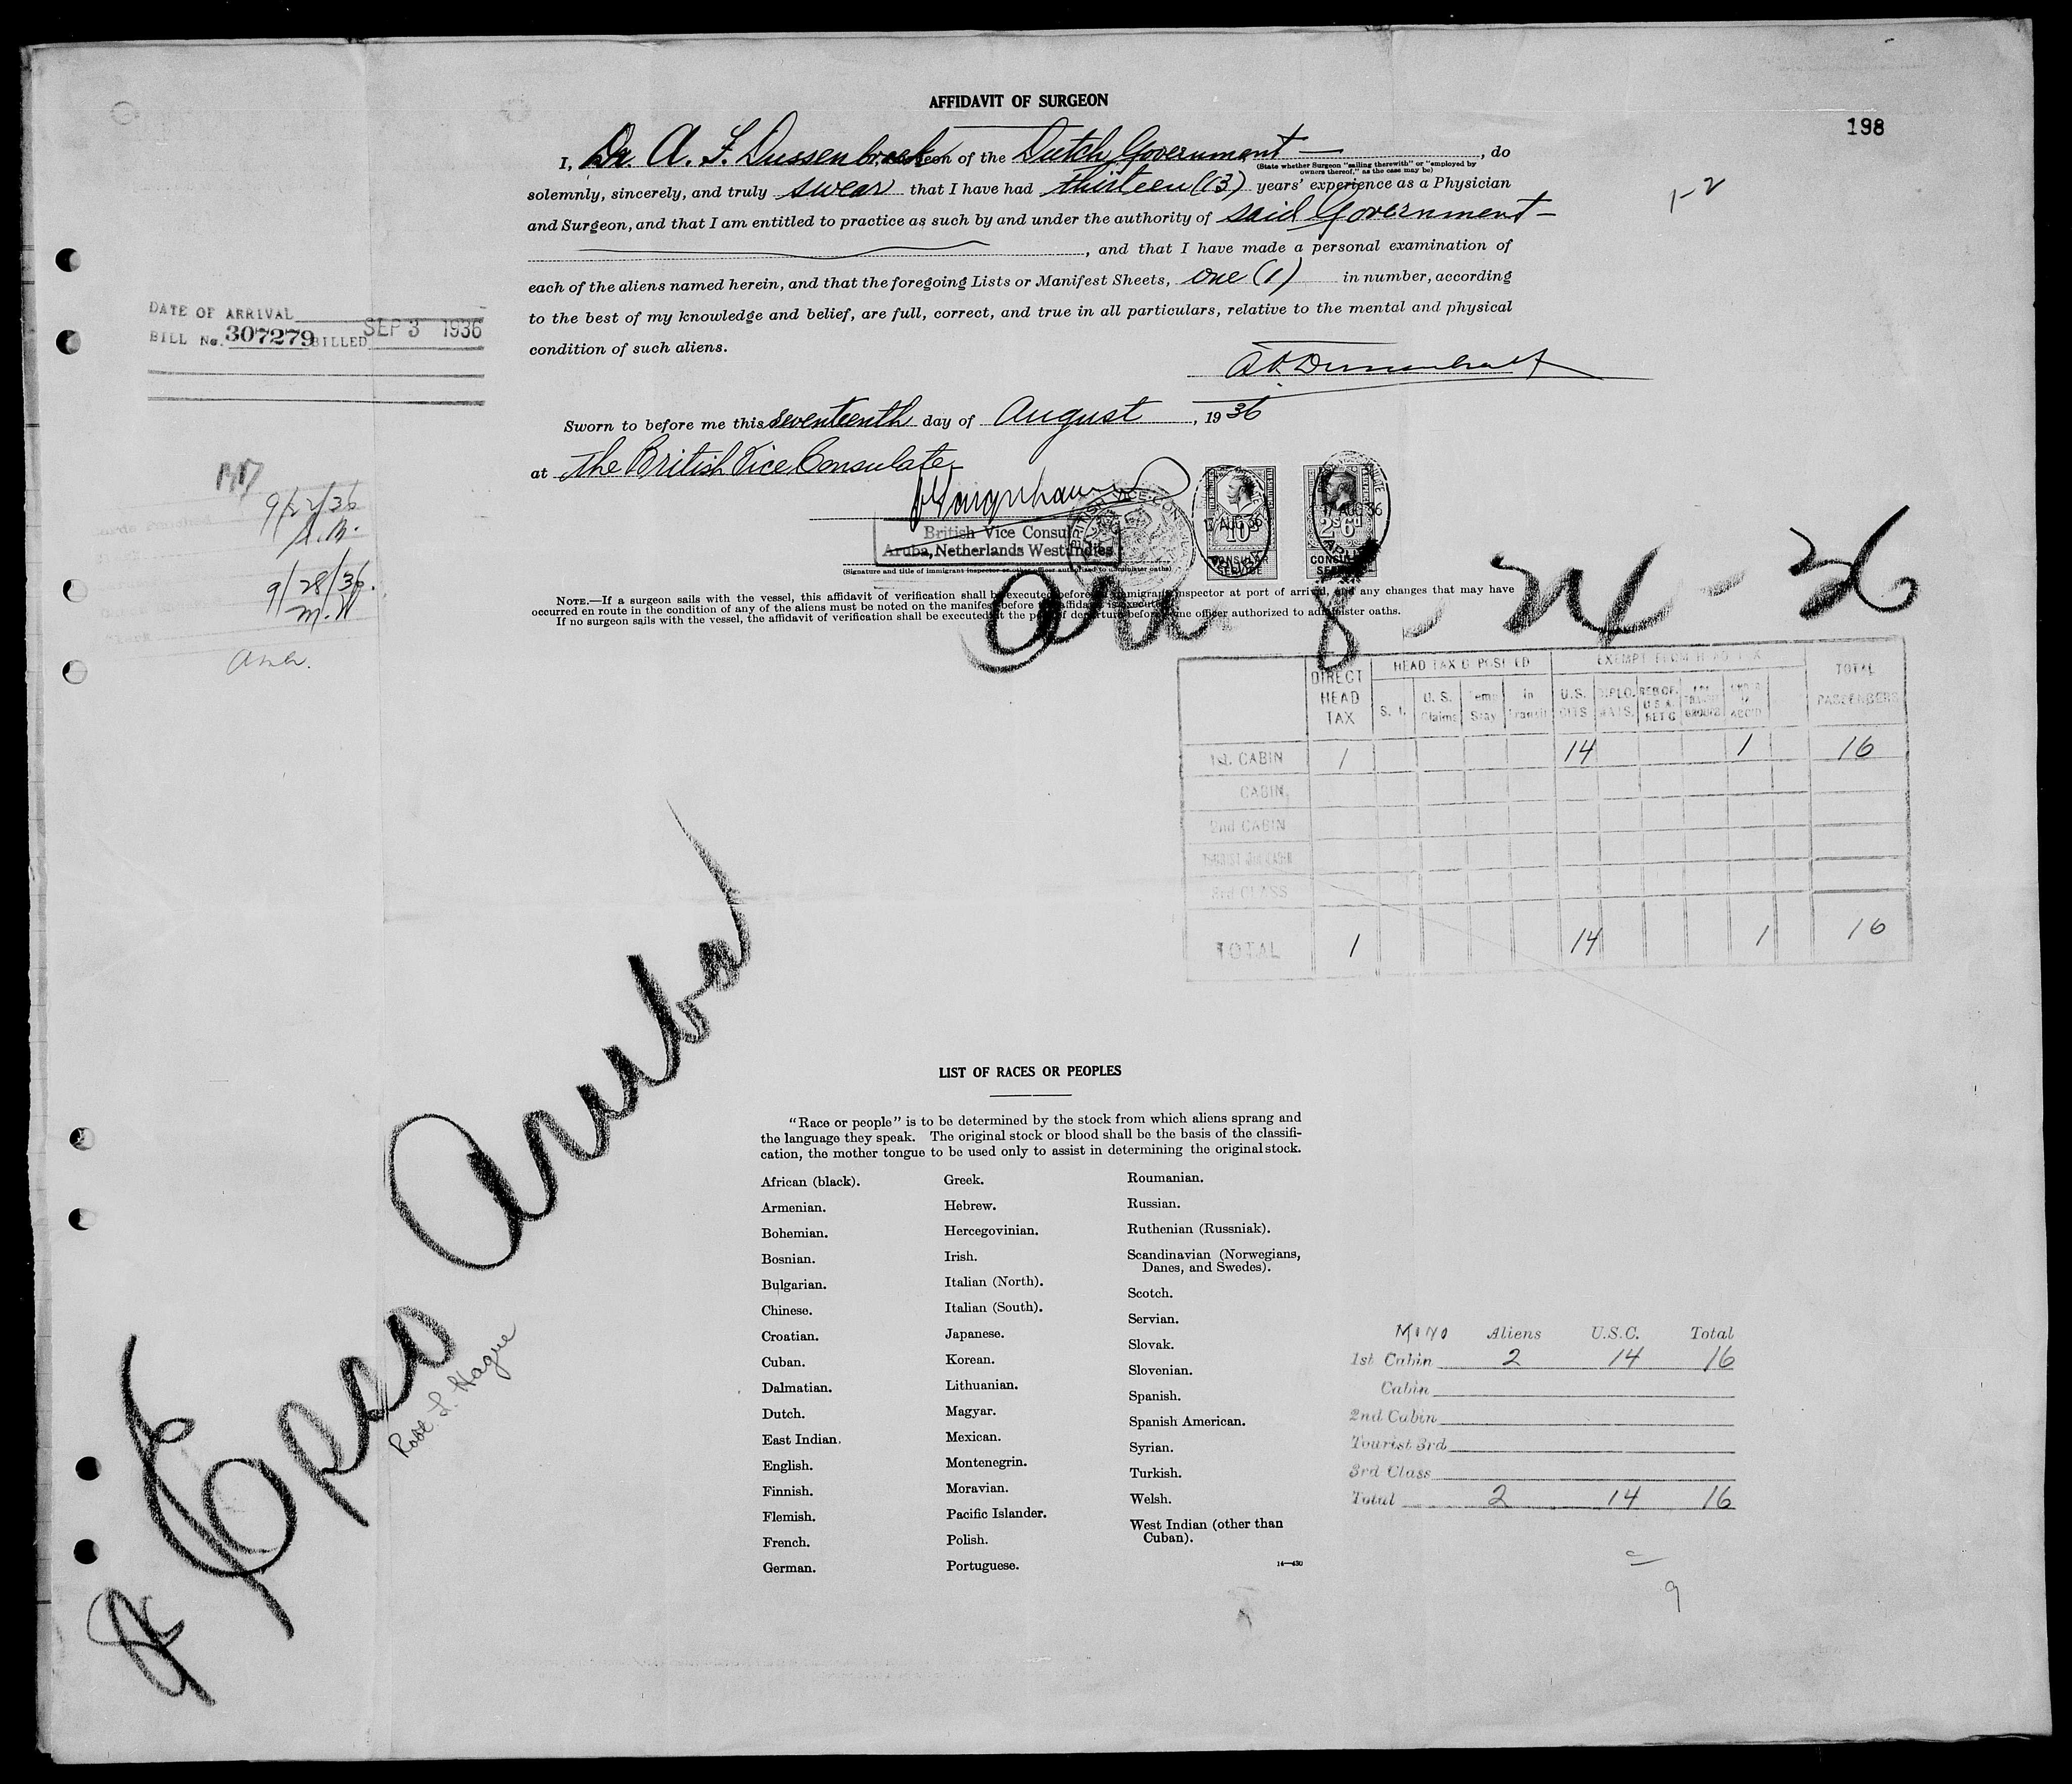 198
AFFIDAVIT OF SURGEON
I, Dr A. F. Dussenbroek Surgeon of the Dutch Government —, do
(State whether Surgeon "sailing therewith" or "employed by
owners thereof," as the case may be)
solemnly, sincerely, and truly swear that I have had thirteen (13) years' experience as a Physician
1-2
and Surgeon, and that I am entitled to practice as such by and under the authority of said Government —
, and that I have made a personal examination of
each of the aliens named herein, and that the foregoing Lists or Manifest Sheets, one (1) in number, according
to the best of my knowledge and belief, are full, correct, and true in all particulars, relative to the mental and physical
condition of such aliens.
DATE OF ARRIVAL
BILL No. 307279 BILLED SEP 3 1936
Sworn to before me this seventeenth day of August, 1936
at The British Vice Consulate
British Vice Consul
Aruba, Netherlands West Indies
(Signature and title of immigrant inspector or other officer authorized to administer oaths)
17 AUG 36
10s
CONSULAR
SERVICE
17 AUG 36
2s 6d
CONSULAR
SERVICE
9/22/36
9/28/36.
M.W
NOTE.—If a surgeon sails with the vessel, this affidavit of verification shall be executed before an immigrant inspector at port of arrival, and any changes that may have
occurred en route in the condition of any of the aliens must be noted on the manifest before the affidavit is executed.
If no surgeon sails with the vessel, the affidavit of verification shall be executed at the port of departure before some officer authorized to administer oaths.
Arr. 8-24-36
DIRECT HEAD TAX
HEAD TAX DEPOSITED
EXEMPT FROM HEAD TAX
TOTAL PASSENGERS
S. I.
U. S. Claims
Temp Stay
In Transit
U.S. CITS
DIPLO. MATS.
1st. CABIN 1 14 1 16
CABIN
2nd CABIN
TOURIST 3rd CABIN
3rd CLASS
TOTAL 1 14 1 16
Esso Aruba
Robt L. Hague
LIST OF RACES OR PEOPLES
"Race or people" is to be determined by the stock from which aliens sprang and
the language they speak. The original stock or blood shall be the basis of the classifi-
cation, the mother tongue to be used only to assist in determining the original stock.
African (black).
Armenian.
Bohemian.
Bosnian.
Bulgarian.
Chinese.
Croatian.
Cuban.
Dalmatian.
Dutch.
East Indian.
English.
Finnish.
Flemish.
French.
German.
Greek.
Hebrew.
Hercegovinian.
Irish.
Italian (North).
Italian (South).
Japanese.
Korean.
Lithuanian.
Magyar.
Mexican.
Montenegrin.
Moravian.
Pacific Islander.
Polish.
Portuguese.
Roumanian.
Russian.
Ruthenian (Russniak).
Scandinavian (Norwegians,
Danes, and Swedes).
Scotch.
Servian.
Slovak.
Slovenian.
Spanish.
Spanish American.
Syrian.
Turkish.
Welsh.
West Indian (other than
Cuban).
14—430
Aliens U.S.C. Total
1st Cabin 2 14 16
Cabin
2nd Cabin
Tourist 3rd
3rd Class
Total 2 14 16
9